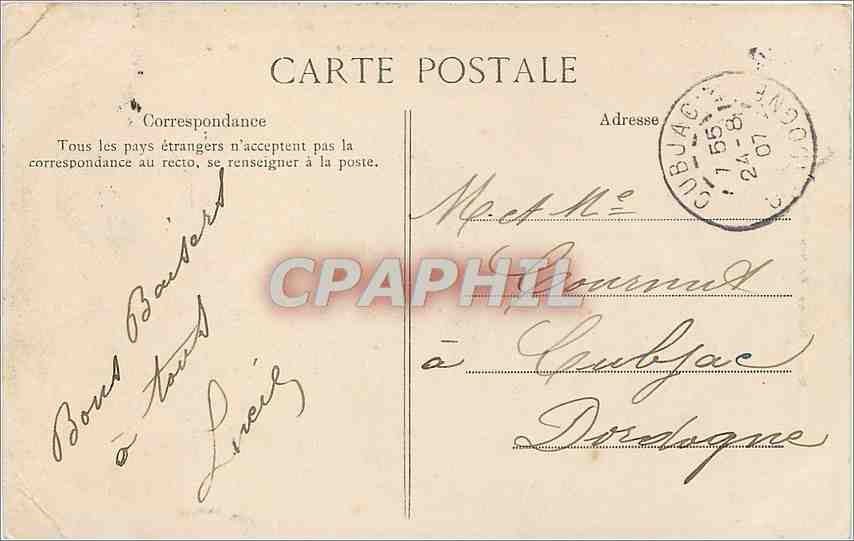 CARTE POSTALE
Correspondance
Tous les pays étrangers n'acceptent pas la
correspondance au recto, se renseigner à la poste.
Bons Baisers
à tous
Lucie
Adresse
M. et Me
Cournut
à Cubjac
Dordogne
CUBJAC
7 55
24-8
07
DORDOGNE
CPAPHIL